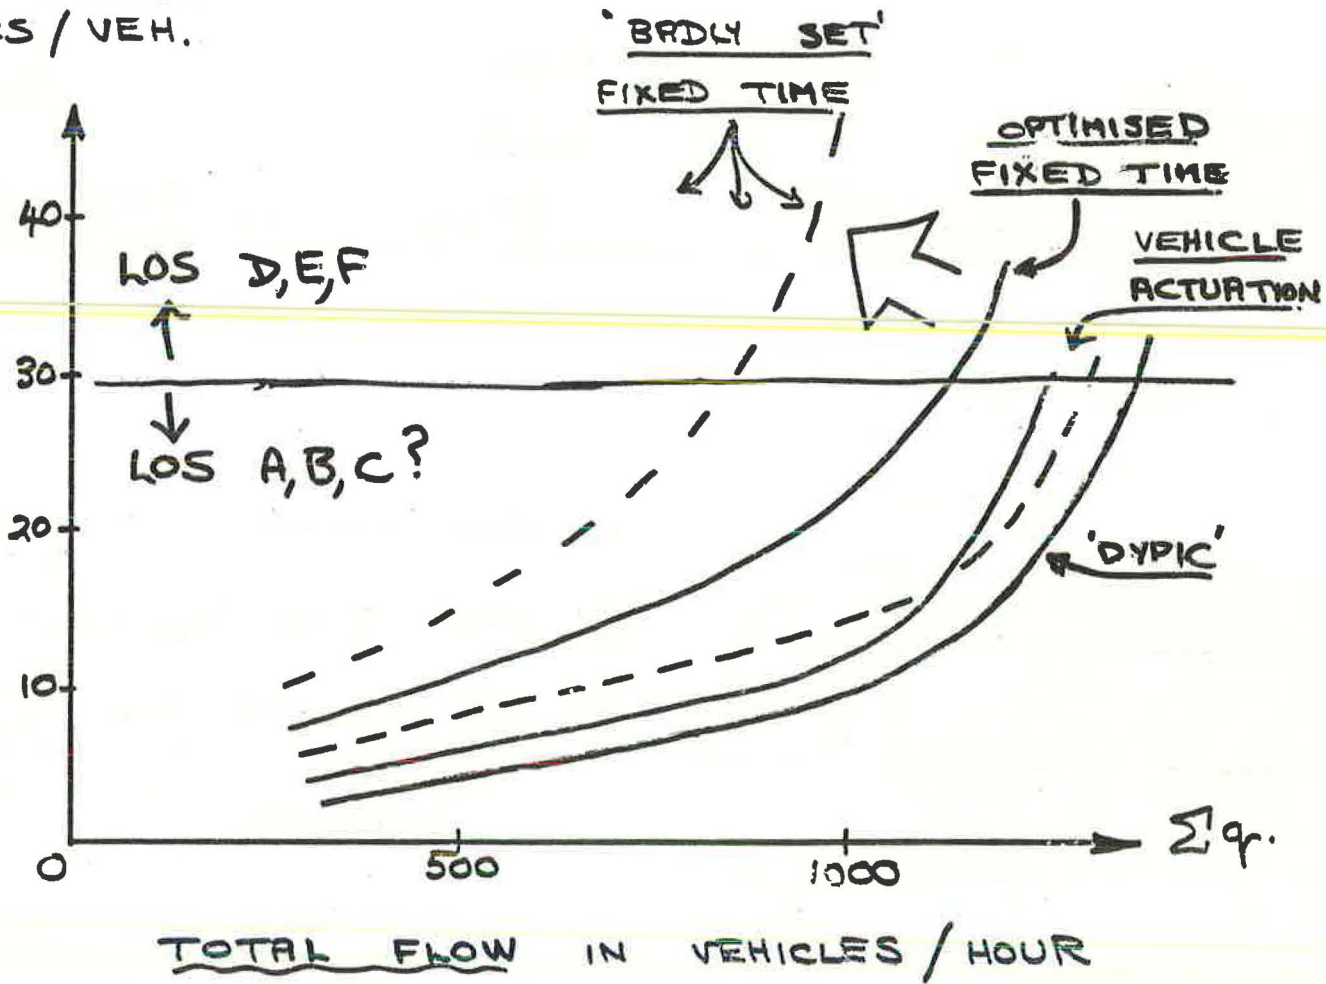 / VEH.
'BADLY SET'
FIXED TIME
OPTIMISED
FIXED TIME
VEHICLE
ACTUATION
40
LOS D,E,F
30
LOS A,B,C?
20
'DYPIC'
10
0
500
1000
Σq.
TOTAL FLOW IN VEHICLES / HOUR